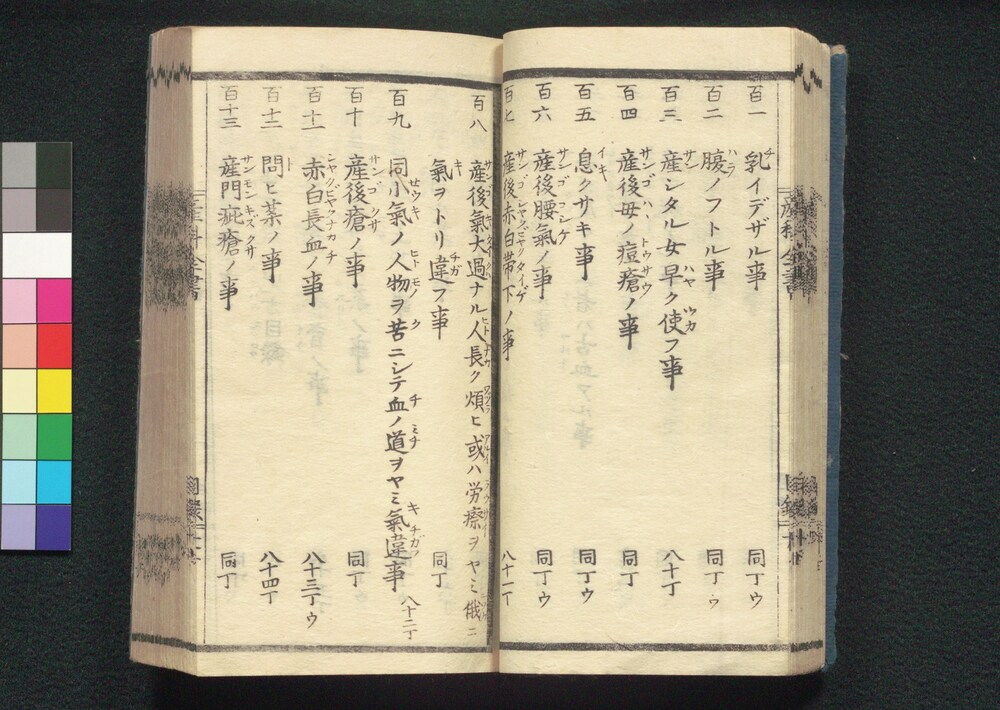 百一 乳イデザル事 同丁ウ
百二 腹ノフトル事 同丁ウ
百三 産シタル女早ク使フ事 八十丁
百四 産後母ノ痘瘡ノ事 同丁
百五 息クサキ事 同丁ウ
百六 産後腰氣ノ事 同丁ウ
百七 産後赤白帯下ノ事 八十一丁
百八 産後氣大過ナル人長ク煩ヒ或ハ労瘵ヲヤミ俄ニ
氣ヲトリ違フ事 同丁
百九 同小氣ノ人物ヲ苦ニシテ血ノ道ヲヤミ氣違事 八十二丁
百十 産後瘡ノ事 同丁
百十一 赤白長血ノ事 八十三丁ウ
百十二 問ヒ薬ノ事 八十四丁
百十三 産門疵瘡ノ事 同丁